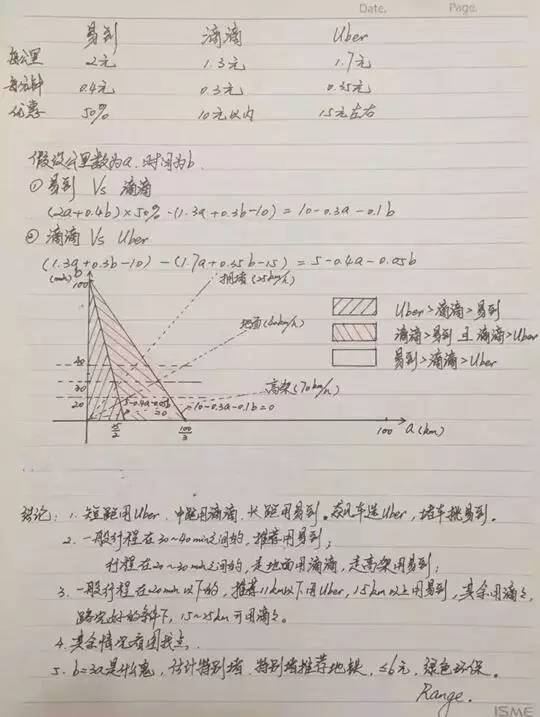 Date. Page.
易到 滴滴 Uber
每公里 2元 1.3元 1.7元
每分钟 0.4元 0.3元 0.35元
优惠 50% 10元以内 15元左右
假设公里数为a.时间为b.
① 易到 Vs 滴滴
(2a+0.4b)×50%-(1.3a+0.3b-10)=10-0.3a-0.1b
② 滴滴 Vs Uber
(1.3a+0.3b-10)-(1.7a+0.35b-15)=5-0.4a-0.05b
b
(min)
100
拥堵(25km/h)
地面(40km/h)
高架(70km/h)
40
30
20
5-0.4a-0.05b
=0
10-0.3a-0.1b=0
100/3
100 a(km)
Uber>滴滴>易到
滴滴>易到 且 滴滴>Uber
易到>滴滴>Uber
结论: 1. 短距用Uber.中距用滴滴.长距用易到。兜风车选Uber,堵车挑易到.
2. 一般行程在30~40min之间的,推荐用易到;
行程在20~30min之间的,走地面用滴滴,走高架用易到;
3. 一般行程在20min以下的,推荐11km以下用Uber,15km以上用易到,其余用滴滴,
路况好的条件下,15~25km可用滴滴。
4. 其余情况看图找点.
5. b=3a是什么鬼,估计特别堵.特别堵推荐地铁,≤6元,绿色环保。
Range.
ISME